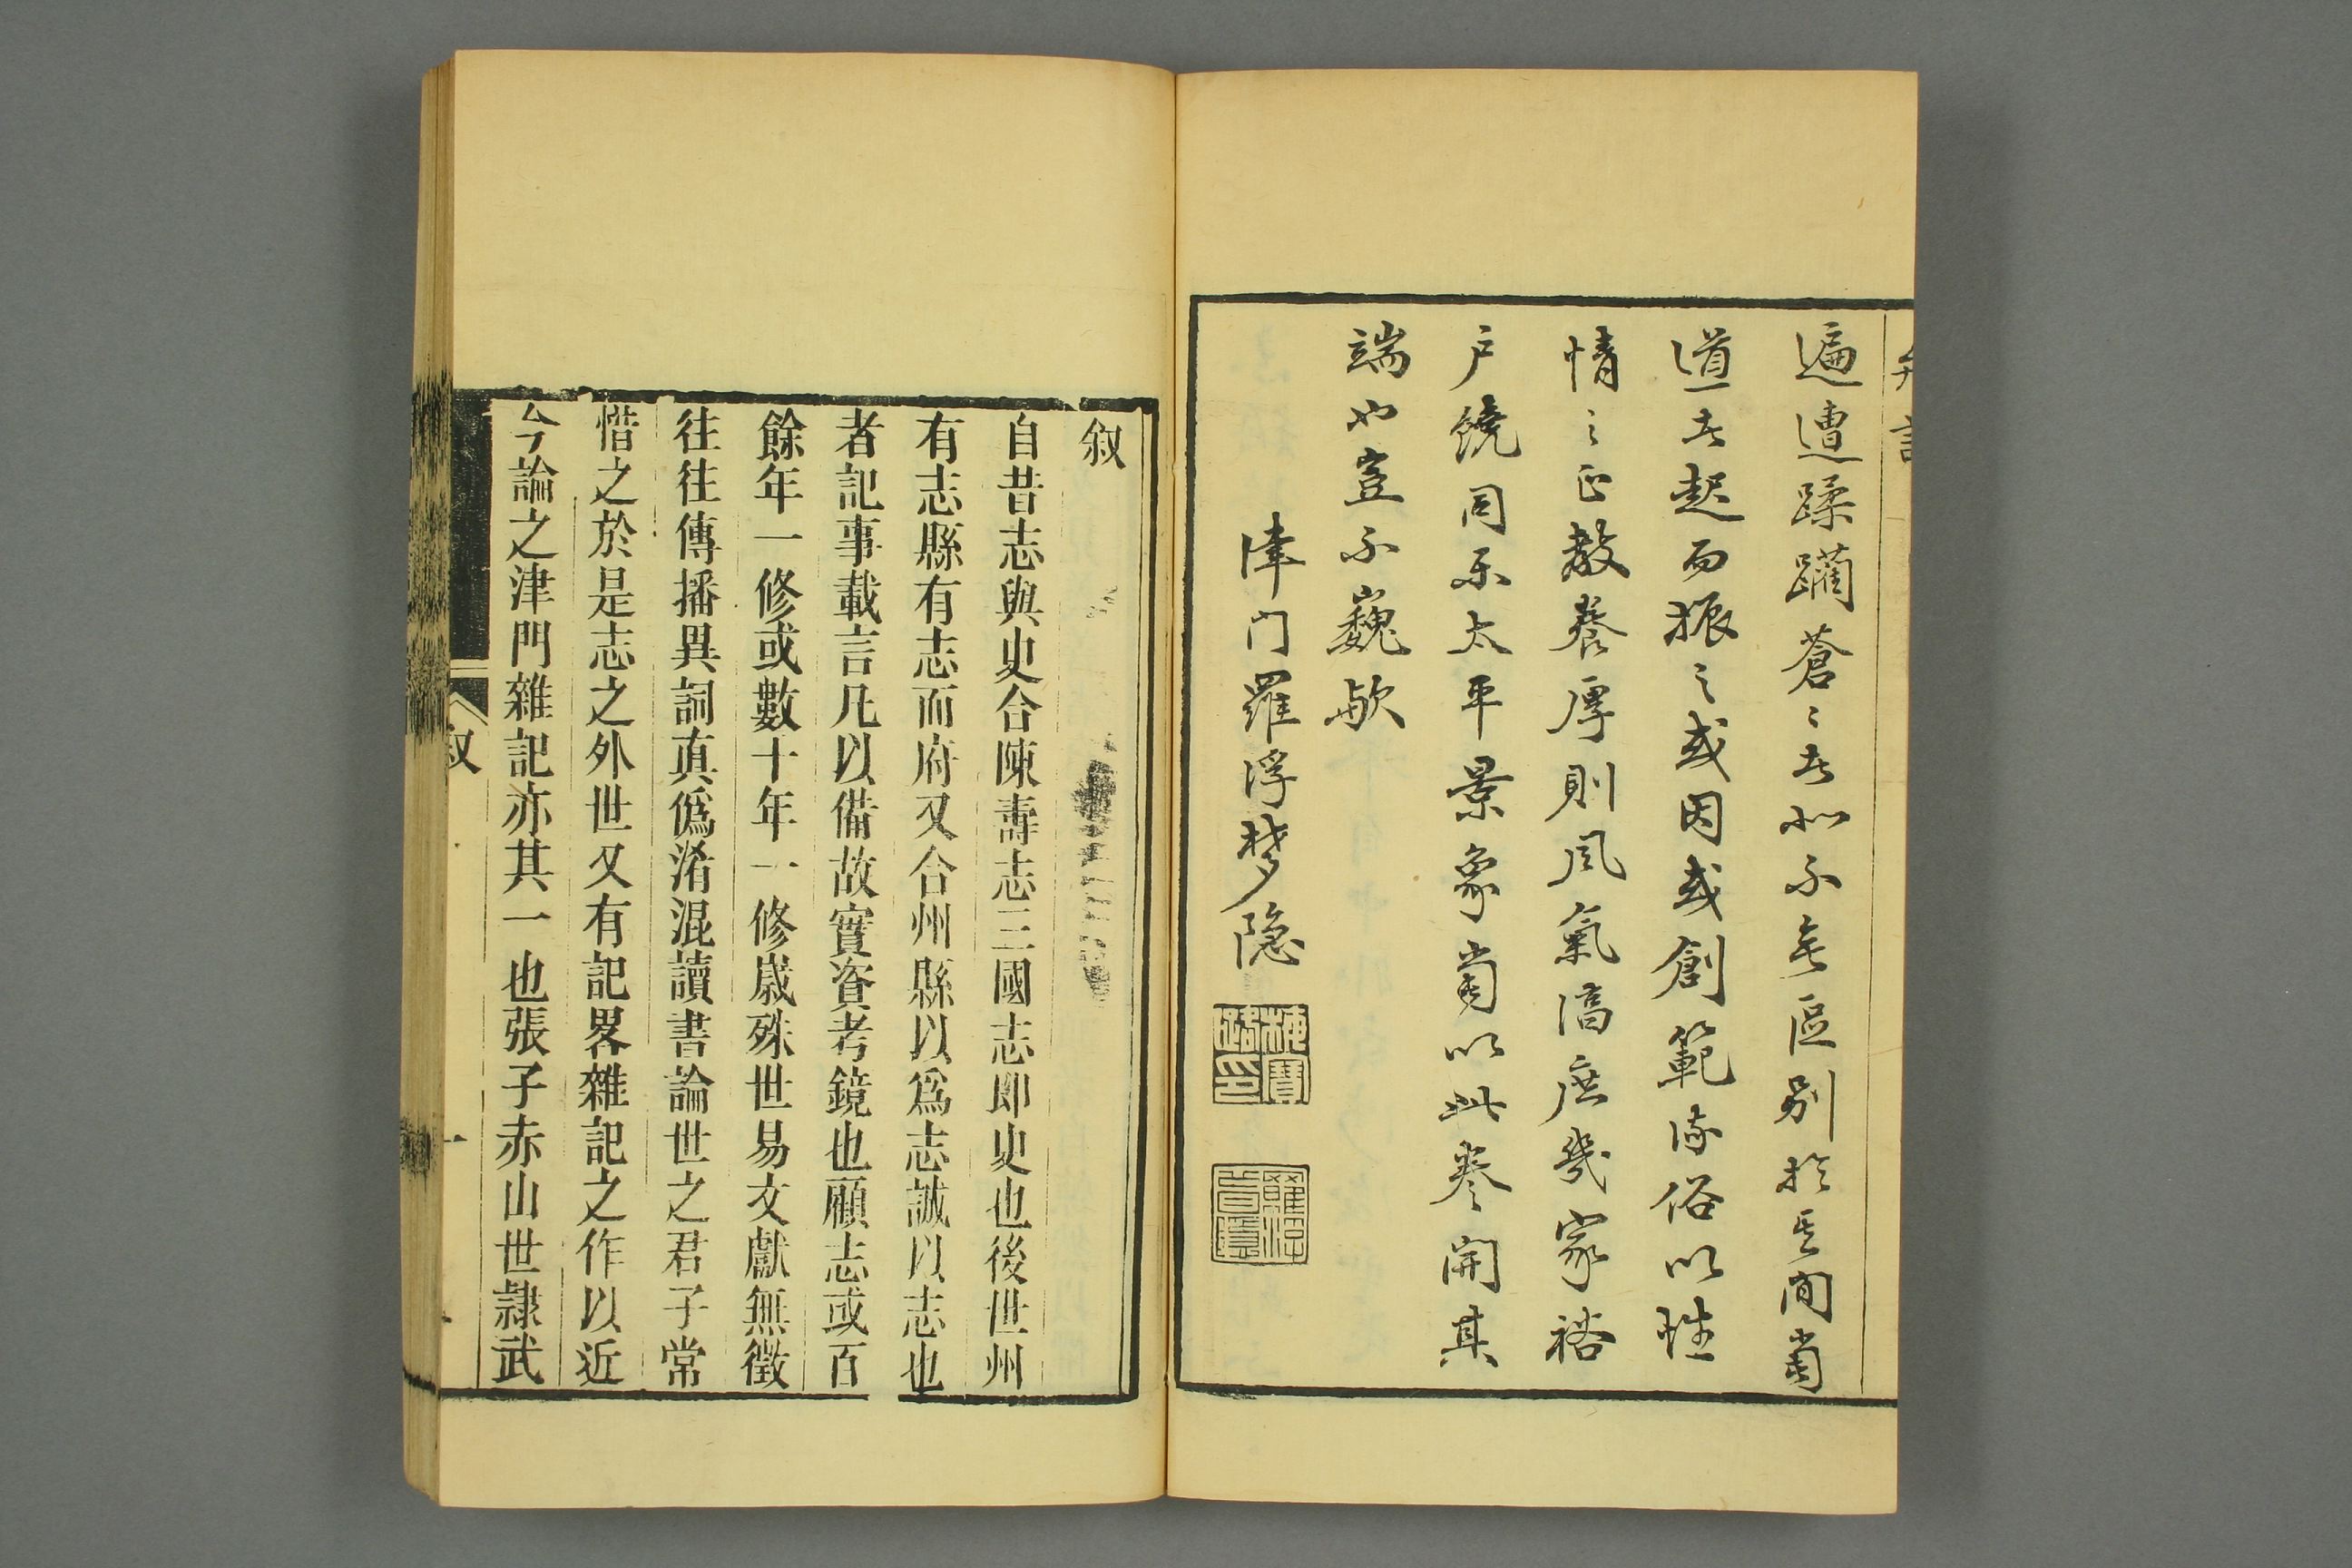 弁言
遍遭蹂躪蒼〻者非不無區別於其間苟
道者起而振之或因或創範俗以性
情之正教養厚則風氣高庶幾家裕
戶饒同樂太平景象苟以此卷開其
端也豈不巍歟
津门羅浮梦隐
叙
自昔志與史合陳壽志三國志即史也後世州
有志縣有志而府又合州縣以爲志誠以志也
者記事載言凡以備故實資考鏡也顧志或百
餘年一修或數十年一修嵗殊世易文獻無徵
往往傳播異詞真僞淆混讀書論世之君子常
惜之於是志之外世又有記畧雜記之作以近
今論之津門雜記亦其一也張子赤山世隸武
叙
一